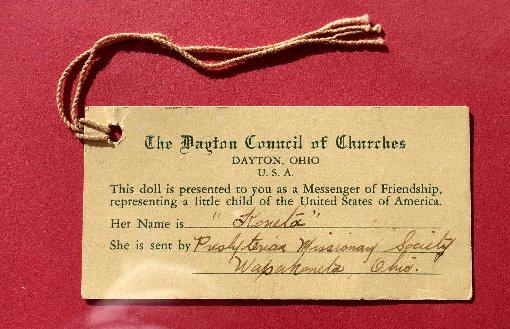 The Dayton Council of Churches
DAYTON, OHIO
U. S. A.
This doll is presented to you as a Messenger of Friendship,
representing a little child of the United States of America.
Her Name is "Koneta"
She is sent by Presbyterian Missionary Society
Wapakoneta Ohio.